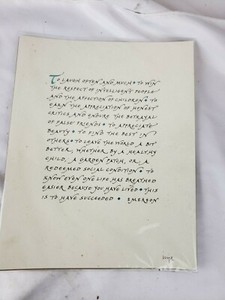 TO LAUGH OFTEN AND MUCH • TO WIN
THE RESPECT OF INTELLIGENT PEOPLE
AND THE AFFECTION OF CHILDREN • TO
EARN THE APPRECIATION OF HONEST
CRITICS, AND ENDURE THE BETRAYAL
OF FALSE FRIENDS • TO APPRECIATE
BEAUTY • TO FIND THE BEST IN
OTHERS • TO LEAVE THE WORLD A BIT
BETTER, WHETHER BY A HEALTHY
CHILD, A GARDEN PATCH, OR A
REDEEMED SOCIAL CONDITION • TO
KNOW EVEN ONE LIFE HAS BREATHED
EASIER BECAUSE YOU HAVE LIVED • THIS
IS TO HAVE SUCCEEDED • EMERSON